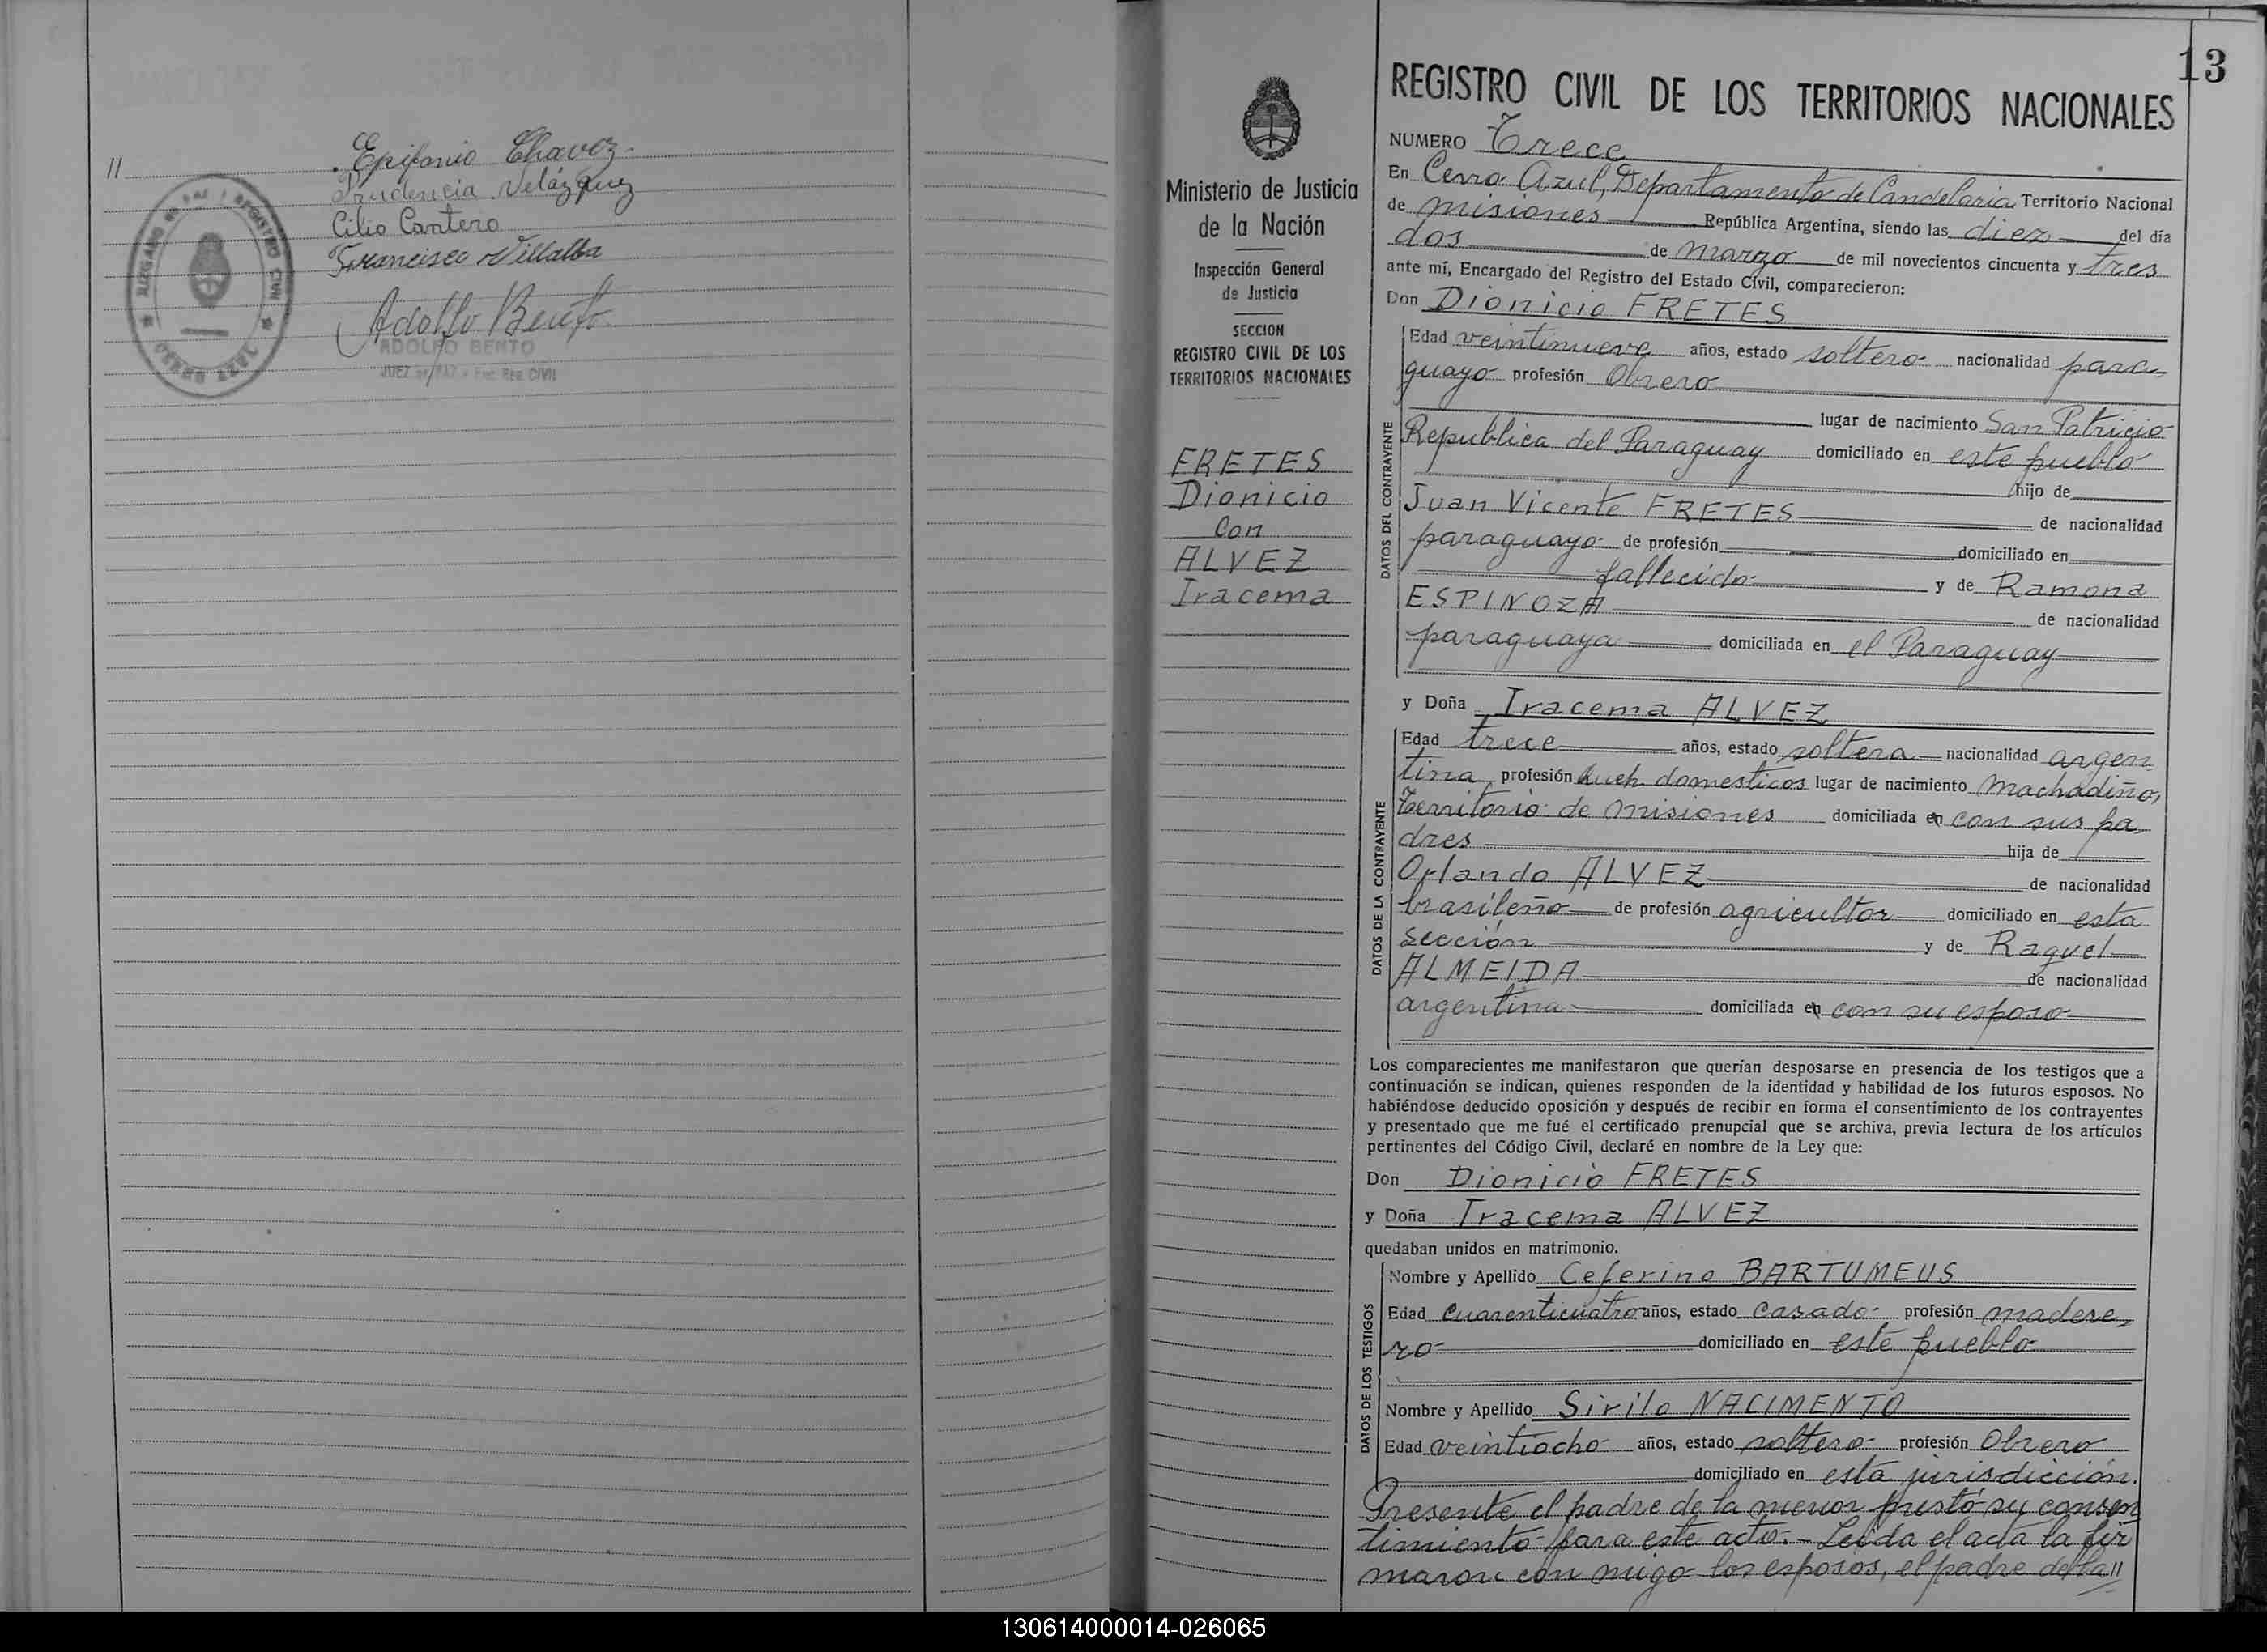 //
Epifanio Chavez
Prudencia Velázquez
Cilio Cantero
Francisco Villalba
Adolfo Bento
ADOLFO BENTO
JUEZ DE PAZ - Enc. REG. CIVIL
JUZGADO DE PAZ Y REGISTRO CIVIL
CERRO AZUL
Ministerio de Justicia
de la Nación
Inspección General
de Justicia
SECCION
REGISTRO CIVIL DE LOS
TERRITORIOS NACIONALES
FRETES
Dionicio
con
ALVEZ
Iracema
13
REGISTRO CIVIL DE LOS TERRITORIOS NACIONALES
NUMERO Trece
En Cerro Azul, Departamento de Candelaria Territorio Nacional
de Misiones República Argentina, siendo las diez del día
dos de Marzo de mil novecientos cincuenta y tres
ante mí, Encargado del Registro del Estado Civil, comparecieron:
Don Dionicio FRETES
DATOS DEL CONTRAYENTE
Edad veintinueve años, estado soltero nacionalidad para
guayo profesión Obrero
lugar de nacimiento San Patricio
Republica del Paraguay domiciliado en este pueblo
hijo de
Juan Vicente FRETES de nacionalidad
paraguayo de profesión domiciliado en
fallecido y de Ramona
ESPINOZA de nacionalidad
paraguaya domiciliada en el Paraguay
y Doña Iracema ALVEZ
DATOS DE LA CONTRAYENTE
Edad trece años, estado soltera nacionalidad argen
tina profesión queh. domesticos lugar de nacimiento Machadiño,
Territorio de Misiones domiciliada en con sus pa
dres hija de
Orlando ALVEZ de nacionalidad
brasileño de profesión agricultor domiciliado en esta
sección y de Raquel
ALMEIDA de nacionalidad
argentina domiciliada en con su esposo
Los comparecientes me manifestaron que querían desposarse en presencia de los testigos que a
continuación se indican, quienes responden de la identidad y habilidad de los futuros esposos. No
habiéndose deducido oposición y después de recibir en forma el consentimiento de los contrayentes
y presentado que me fué el certificado prenupcial que se archiva, previa lectura de los artículos
pertinentes del Código Civil, declaré en nombre de la Ley que:
Don Dionicio FRETES
y Doña Iracema ALVEZ
quedaban unidos en matrimonio.
DATOS DE LOS TESTIGOS
Nombre y Apellido Ceferino BARTUMEUS
Edad cuarenticuatro años, estado casado profesión madere,
ro domiciliado en este pueblo
Nombre y Apellido Sirilo NACIMENTO
Edad veintiocho años, estado soltero profesión Obrero
domiciliado en esta jurisdicción.
Presente el padre de la menor prestó su consen
timiento para este acto.- Leída el acta la fir
maron con migo los esposos, el padre de la //
130614000014-026065